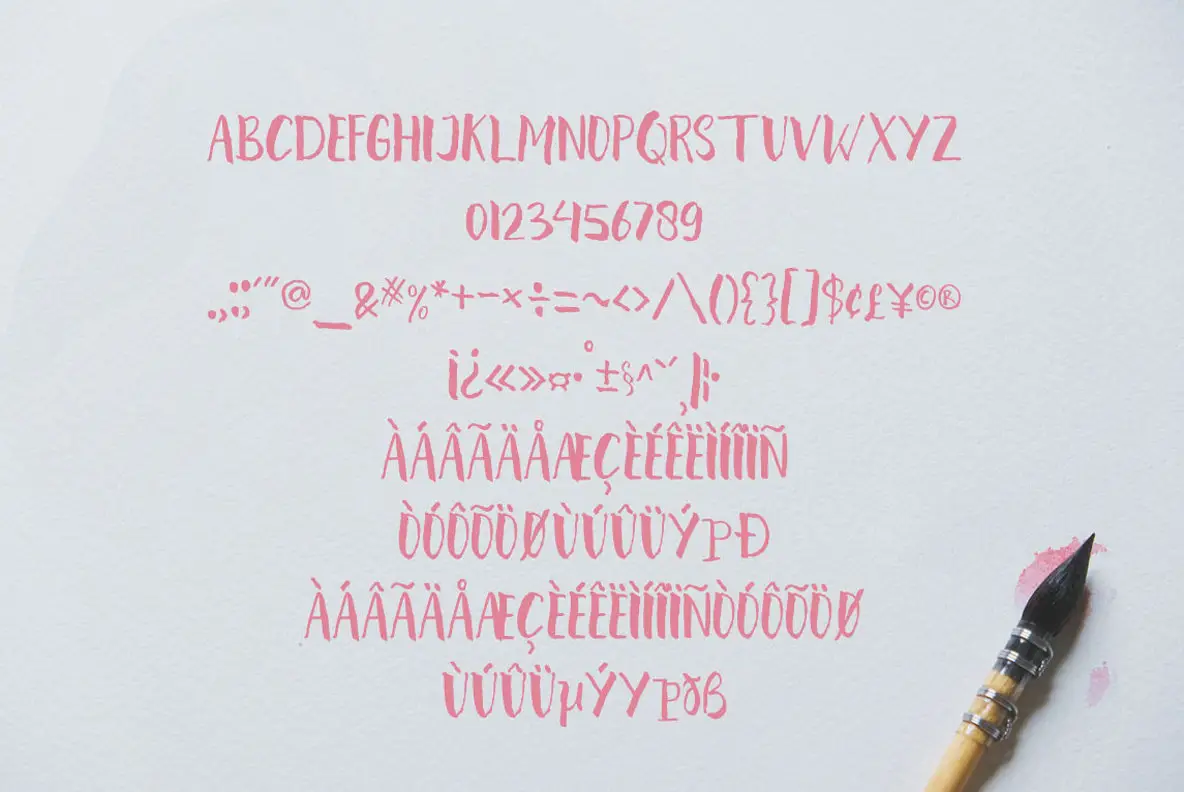 ABCDEFGHIJKLMNOPQRSTUVWXYZ
0123456789
.,;:"'"@_&#%*+−×÷=~<>/\(){}[]$¢£¥©®
¡¿«»¤•°±§^`˘¸|¦·
ÀÁÂÃÄÅÆÇÈÉÊËÌÍÎÏÑ
ÒÓÔÕÖØÙÚÛÜÝÞÐ
ÀÁÂÃÄÅÆÇÈÉÊËÌÍÎÏÑÒÓÔÕÖØ
ÙÚÛÜµÝYÞðß